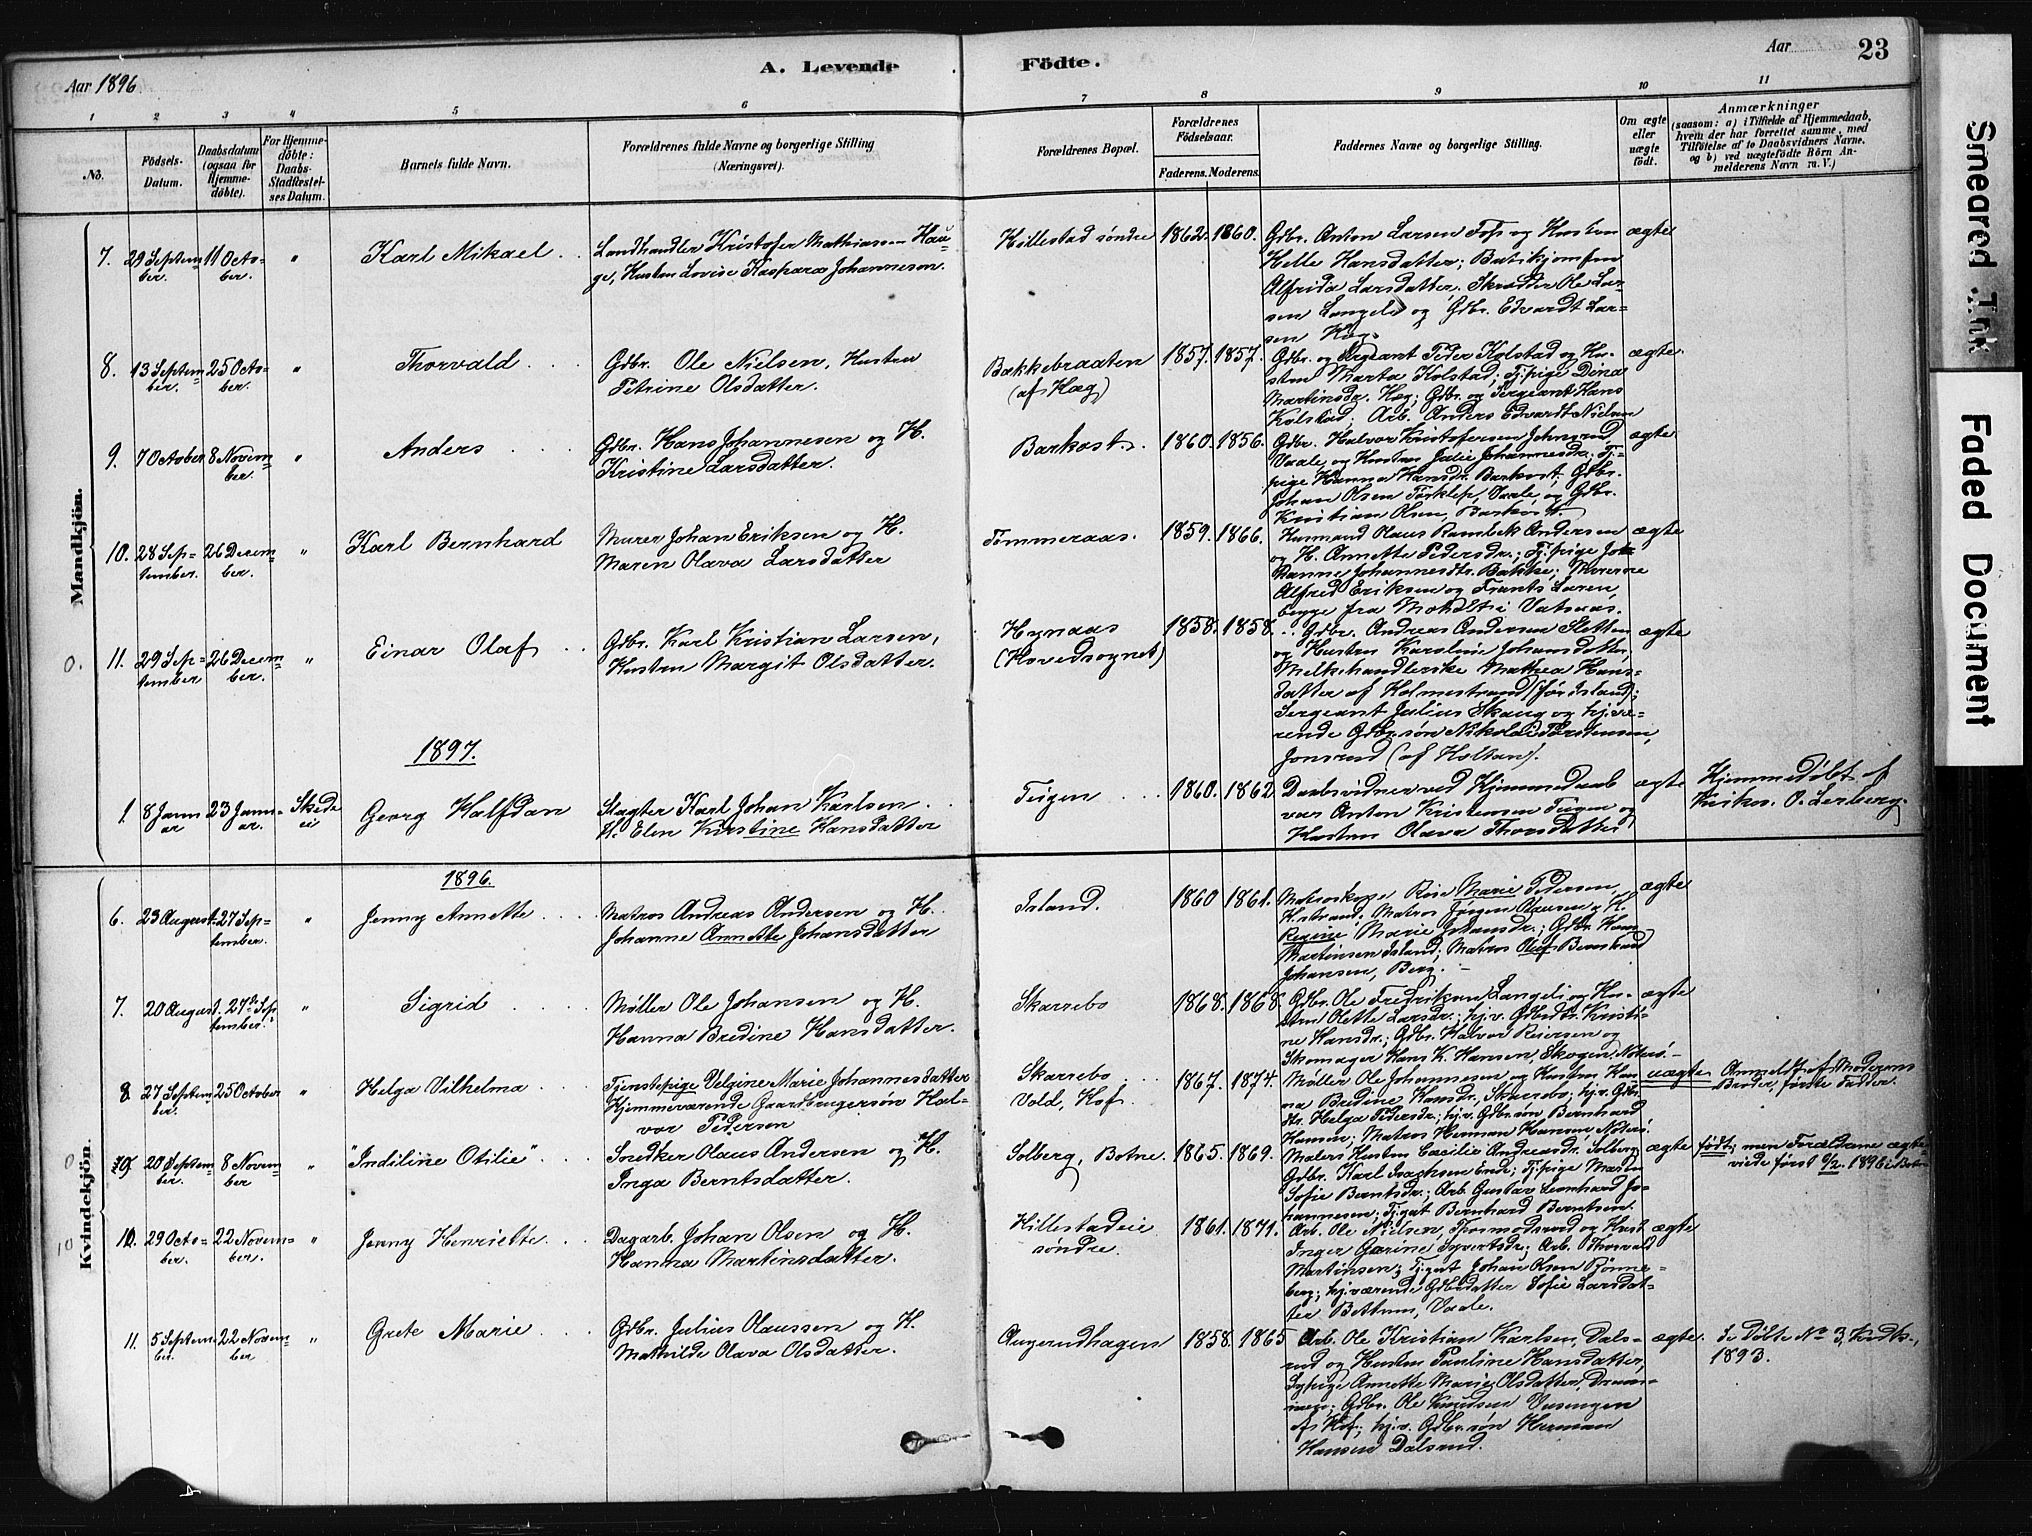 Aar 1896.
A. Levende Födte.
Aar
23
1 2 3 4 5 6 7 8 9 10 11
No.
Födsels-
Datum.
Daabsdatum
(ogsaa for
Hjemme-
döbte).
For Hjemme-
döbte:
Daabs-
Stadfæstel-
ses Datum.
Barnets fulde Navn.
Forældrenes fulde Navne og borgerlige Stilling
(Næringsvei).
Forældrenes Bopæl.
Forældrenes
Födselsaar.
Faderens. Moderens.
Faddernes Navne og borgerlige Stilling.
Om ægte
eller
uægte
födt.
Anmærkninger
(saasom: a) i Tilfælde af Hjemmedaab,
hvem der har forrettet samme, med
Tilföielse af to Daabsvidners Navne,
og b) ved uægtefödte Börn An-
melderens Navn m. V.)
Mandkjön.
7.
29 Septem
ber.
11 Octo-
ber.
"
Karl Mikael
Landhandler Kristofer Mathiassen Hau-
ge, Hustru Lovise Kaspara Johannesen.
Hillestad söndre
1862. 1860.
Gdbr. Anton Larsen Fos og Hustru
Helle Hansdatter; Butikjomfru
Alfrida Larsdatter. Skrædder Ole Lar-
sen Langeli og Gdbr. Edvardt Lar-
sen Hæg.
ægte
8.
13 Septem
ber.
25 Octo-
ber.
"
Thorvald
Gdbr. Ole Nielsen, Hustru
Petrine Olsdatter.
Bakkebraaten
(af Hæg)
1857. 1857.
Gdbr. og Sergeant Peder Kolstad og Hu-
stru Marta Kolstad; Tj.pige Dina
Martinsdr. Hæg; Gdbr. og Sergeant Hans
Kolstad, Arb. Anders Edvardt Nielsen
ægte
9.
7 October
8 Novem
ber.
"
Anders
Gdbr. Hans Johannesen og H.
Kristine Larsdatter.
Barkost.
1860. 1856.
Gdbr. Halvor Kristofersen Johnsrud,
Vaale og Hustru Julie Johannesdr. Tj-
pige Hanna Hansdr. Barkost, Gdbr.
Johan Olsen Törklep, Vaale, og Gdbr.
Kristian Olsen, Barkost.
ægte
10.
28 Sep-
tember.
26 Decem
ber.
"
Karl Bernhard
Murer Johan Eriksen og H.
Maren Olava Larsdatter
Tömmeraas.
1859. 1866.
Husmand Olaus Rambek Andersen
og H. Annette Pedersdr.; Tj.pige Jo-
hanne Johannesdtr. Bakke; Murerne
Alfred Eriksen og Frants Larsen,
begge fra
ægte
0.
11.
29 Sep-
tember
26 Decem
ber.
"
Einar Olaf
Gdbr. Karl Kristian Larsen,
Hustru Margit Olsdatter.
Hynaas
(Hovedsognet)
1858. 1858.
Gdbr. Andreas Andersen Sletten
og Hustru Karoline Johansdatter,
Melkehandlerske Mathea Hans-
datter af Holmestrand (för Island);
Sergeant Julius Skaug og hj.væ-
rende Gdbr.sön Nikolai Torstensen,
Jonsrud (af Holtan).
ægte
1897.
1.
8 Janu
ar
23 Janu-
ar.
Georg Halfdan
Slagter Karl Johan Karlsen
H. Elen Kirstine Hansdatter
Teigen
1860. 1862
Daabsvidner ved Hjemmedaab
var Anton Kristensen Teigen og
Hustru Olava Thorsdatter
ægte
Hjemmedöbt af
Kirkes. O. Lerberg.
Kvindekjön.
1896.
6.
23 August
27 Sep-
tember.
"
Jenny Annette
Matros Andreas Andersen og H.
Johanne Annette Johansdatter
Island.
1860 1861.
Marie Pedersen,
H.strand. Matros Jörgen Olausen & H.
Regine Marie Johansdr.; Gdbr. Hans
Martinsen Island; Matros Olaf Bernhard
Johansen, Berg.
ægte
7.
20 August.
27de Sep
tember.
"
Sigrid
Möller Ole Johansen og H.
Hanna Bredine Hansdatter.
Skarrebo
1868. 1868.
Gdbr. Ole Fredriksen Langeli og Hu-
stru Olette Larsdr.; hj.v. Gdbrdtr. Kristi-
ne Hansdr.; Gdbr. Halvor Reiersen og
Skomager Hans K. Hansen, Skogen, Nöterö.
ægte
8.
27 Septem
ber.
25 October
"
Helga Vilhelma
Tjenstepige Velgine Marie Johannesdatter
Hjemmeværende Gaardbrugersön Hal-
vor Pedersen
Skarrebo
Vold, Hof.
1867. 1874.
Möller Ole Johannesen og Hustru Han
na Bredine Hansdr., Skarrebo; hj.v. Gdbr.
dtr. Helga Pedersdr.; hj.v. Gdbr.sön Bernhard
Hansen; Matros Herman Hansen Nöterö.
uægte
Anmeldt af Moderens
Broder, förste Fadder.
0
9.
20 Septem-
ber.
8 Novem
ber
"
"Indiline Otilie"
Snedker Olaus Andersen og H.
Inga Berntsdatter.
Solberg, Botne.
1865. 1869.
Malers Hustru Cæcilie Andreasdr. Solberg
Gdbr. Karl Isachsen Enge; Tj.pige Maren
Sofie Berntsdr.; Arb. Gustav Leonhard Jo-
hannesen; Tj.gut Bernhard Berntsen.
ægte
födt, men Forældrene ægte-
viede först 6/2. 1896 i Botne
10
10.
29 Octo-
ber.
22 Novem-
ber.
"
Jenny Henriette
Dagarb. Johan Olsen og H.
Hanna Martinsdatter.
Hillestadeie
söndre.
1861. 1871.
Arb. Ole Nielsen, Thormodsrud og Hust.
Inger Garine Syvertsdr; Arb. Thorvald
Martinsen; Tj.gut Johan Olsen Rönne-
berg; hj.værende Gdbrdatter Sofie Larsdat-
ter Bettum, Vaale.
ægte
11.
5 Septem
ber.
22 Novem
ber
"
Grete Marie
Gdbr. Julius Olaussen og H.
Mathilde Olava Olsdatter.
Augerudhagen
1858. 1865
Arb. Ole Kristian Karlsen, Dals-
rud og Hustru Pauline Hansdatter,
Sypige Annette Marie Olsdatter, Dram-
men; Gdbr. Ole Knudsen
af Hof; hj.v. Gdbr.sön Herman
Hansen Dalsrud.
ægte.
Se Döbte No 3, Kvdk.,
1893.
Smeared Ink
Faded Document